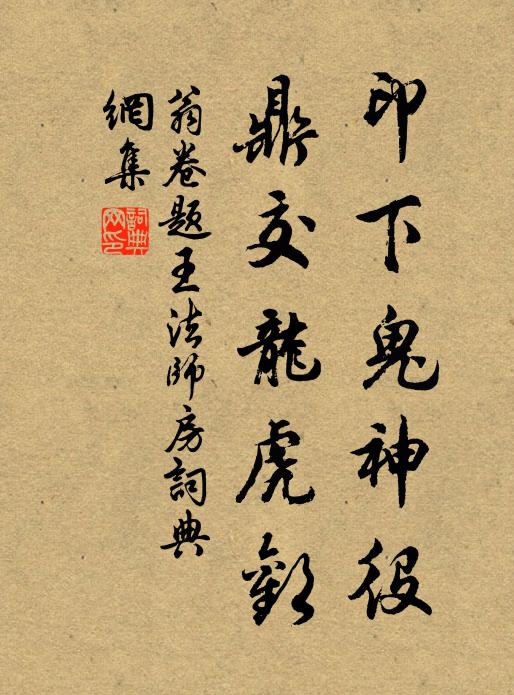 印下鬼神役
鼎交龍虎歡
翁卷題王法師房詞典
網集
詞典網印